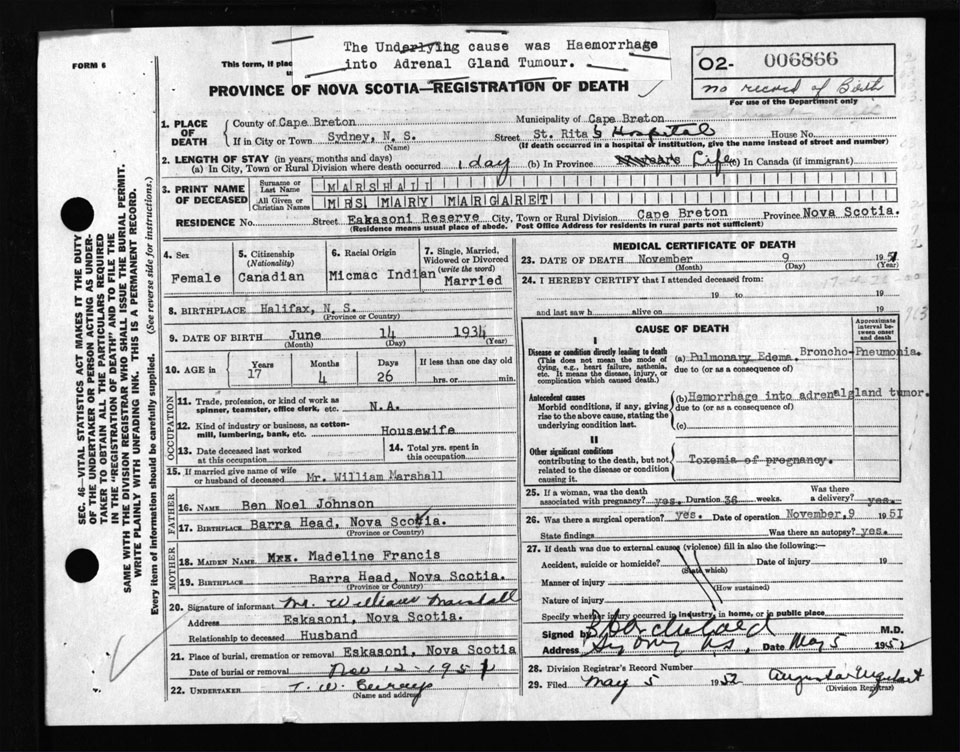 The Underlying cause was Haemorrhage
into Adrenal Gland Tumour.
FORM 6
This form, if place
02- 006866
no record of Birth
For use of the Department only
PROVINCE OF NOVA SCOTIA—REGISTRATION OF DEATH
1. PLACE OF DEATH
County of Cape Breton Municipality of Cape Breton
If in City or Town Sydney, N. S. Street St. Rita's Hospital
(Name) (If death occurred in a hospital or institution, give the name instead of street and number)
2. LENGTH OF STAY (in years, months and days)
(a) In City, Town or Rural Division where death occurred 1 day (b) In Province Life (c) In Canada (if immigrant)
3. PRINT NAME OF DECEASED
Surname or Last Name MARSHALL
All Given or Christian Names MRS MARY MARGARET
RESIDENCE No. Street Eakasoni Reserve City, Town or Rural Division Cape Breton Province Nova Scotia.
(Residence means usual place of abode. Post Office Address for residents in rural parts not sufficient)
SEC. 46—VITAL STATISTICS ACT MAKES IT THE DUTY
OF THE UNDERTAKER OR PERSON ACTING AS UNDER-
TAKER TO OBTAIN ALL THE PARTICULARS REQUIRED
IN THE "REGISTRATION OF DEATH" AND TO FILE THE
SAME WITH THE DIVISION REGISTRAR WHO SHALL ISSUE THE BURIAL PERMIT.
WRITE PLAINLY WITH UNFADING INK. THIS IS A PERMANENT RECORD.
Every item of information should be carefully supplied. (See reverse side for instructions.)
4. Sex
Female
5. Citizenship
(Nationality)
Canadian
6. Racial Origin
Micmac Indian
7. Single, Married,
Widowed or Divorced
(write the word)
Married
8. BIRTHPLACE Halifax, N. S.
(Province or Country)
9. DATE OF BIRTH June 14 1934
(Month) (Day) (Year)
10. AGE in
Years Months Days If less than one day old
17 4 26 hrs. or min.
OCCUPATION
11. Trade, profession, or kind of work as
spinner, teamster, office clerk, etc. N.A.
12. Kind of industry or business, as cotton-
mill, lumbering, bank, etc. Housewife
13. Date deceased last worked
at this occupation
14. Total yrs. spent in
this occupation
15. If married give name of wife
or husband of deceased Mr. William Marshall
FATHER
16. NAME Ben Noel Johnson
17. BIRTHPLACE Barra Head, Nova Scotia.
(Province or Country)
MOTHER
18. MAIDEN NAME Mrx. Madeline Francis
19. BIRTHPLACE Barra Head, Nova Scotia.
(Province or Country)
20. Signature of informant Mr. William Marshall
Address Eskasoni, Nova Scotia.
Relationship to deceased Husband
21. Place of burial, cremation or removal Eskasoni, Nova Scotia
Date of burial or removal Nov 12 - 1951
22. UNDERTAKER T. W. Curry
(Name and address)
MEDICAL CERTIFICATE OF DEATH
23. DATE OF DEATH November 9 1951
(Month) (Day) (Year)
24. I HEREBY CERTIFY that I attended deceased from:
19 to 19
and last saw h alive on 19
CAUSE OF DEATH
Approximate interval between onset and death
I
Disease or condition directly leading to death
(This does not mean the mode of
dying, e.g., heart failure, asthenia,
etc. It means the disease, injury, or
complication which caused death.)
(a) Pulmonary Edema. Broncho-Pneumonia.
due to (or as a consequence of)
Antecedent causes
Morbid conditions, if any, giving
rise to the above cause, stating the
underlying condition last.
(b) Hemorrhage into adrenal gland tumor.
due to (or as a consequence of)
(c)
II
Other significant conditions
contributing to the death, but not
related to the disease or condition
causing it.
Toxemia of pregnancy.
25. If a woman, was the death
associated with pregnancy? yes. Duration 36 weeks. Was there
a delivery? yes.
26. Was there a surgical operation? yes. Date of operation November, 9 1951
State findings Was there an autopsy? yes.
27. If death was due to external cause (violence) fill in also the following:—
Accident, suicide or homicide? Date of injury 19
(State which)
Manner of injury
(How sustained)
Nature of injury
Specify whether injury occurred in industry, in home, or in public place
Signed by M.D.
Address Sydney N.S. Date May 5 1952
28. Division Registrar's Record Number
29. Filed May 5 1952 Augusta Urquhart
(Division Registrar)